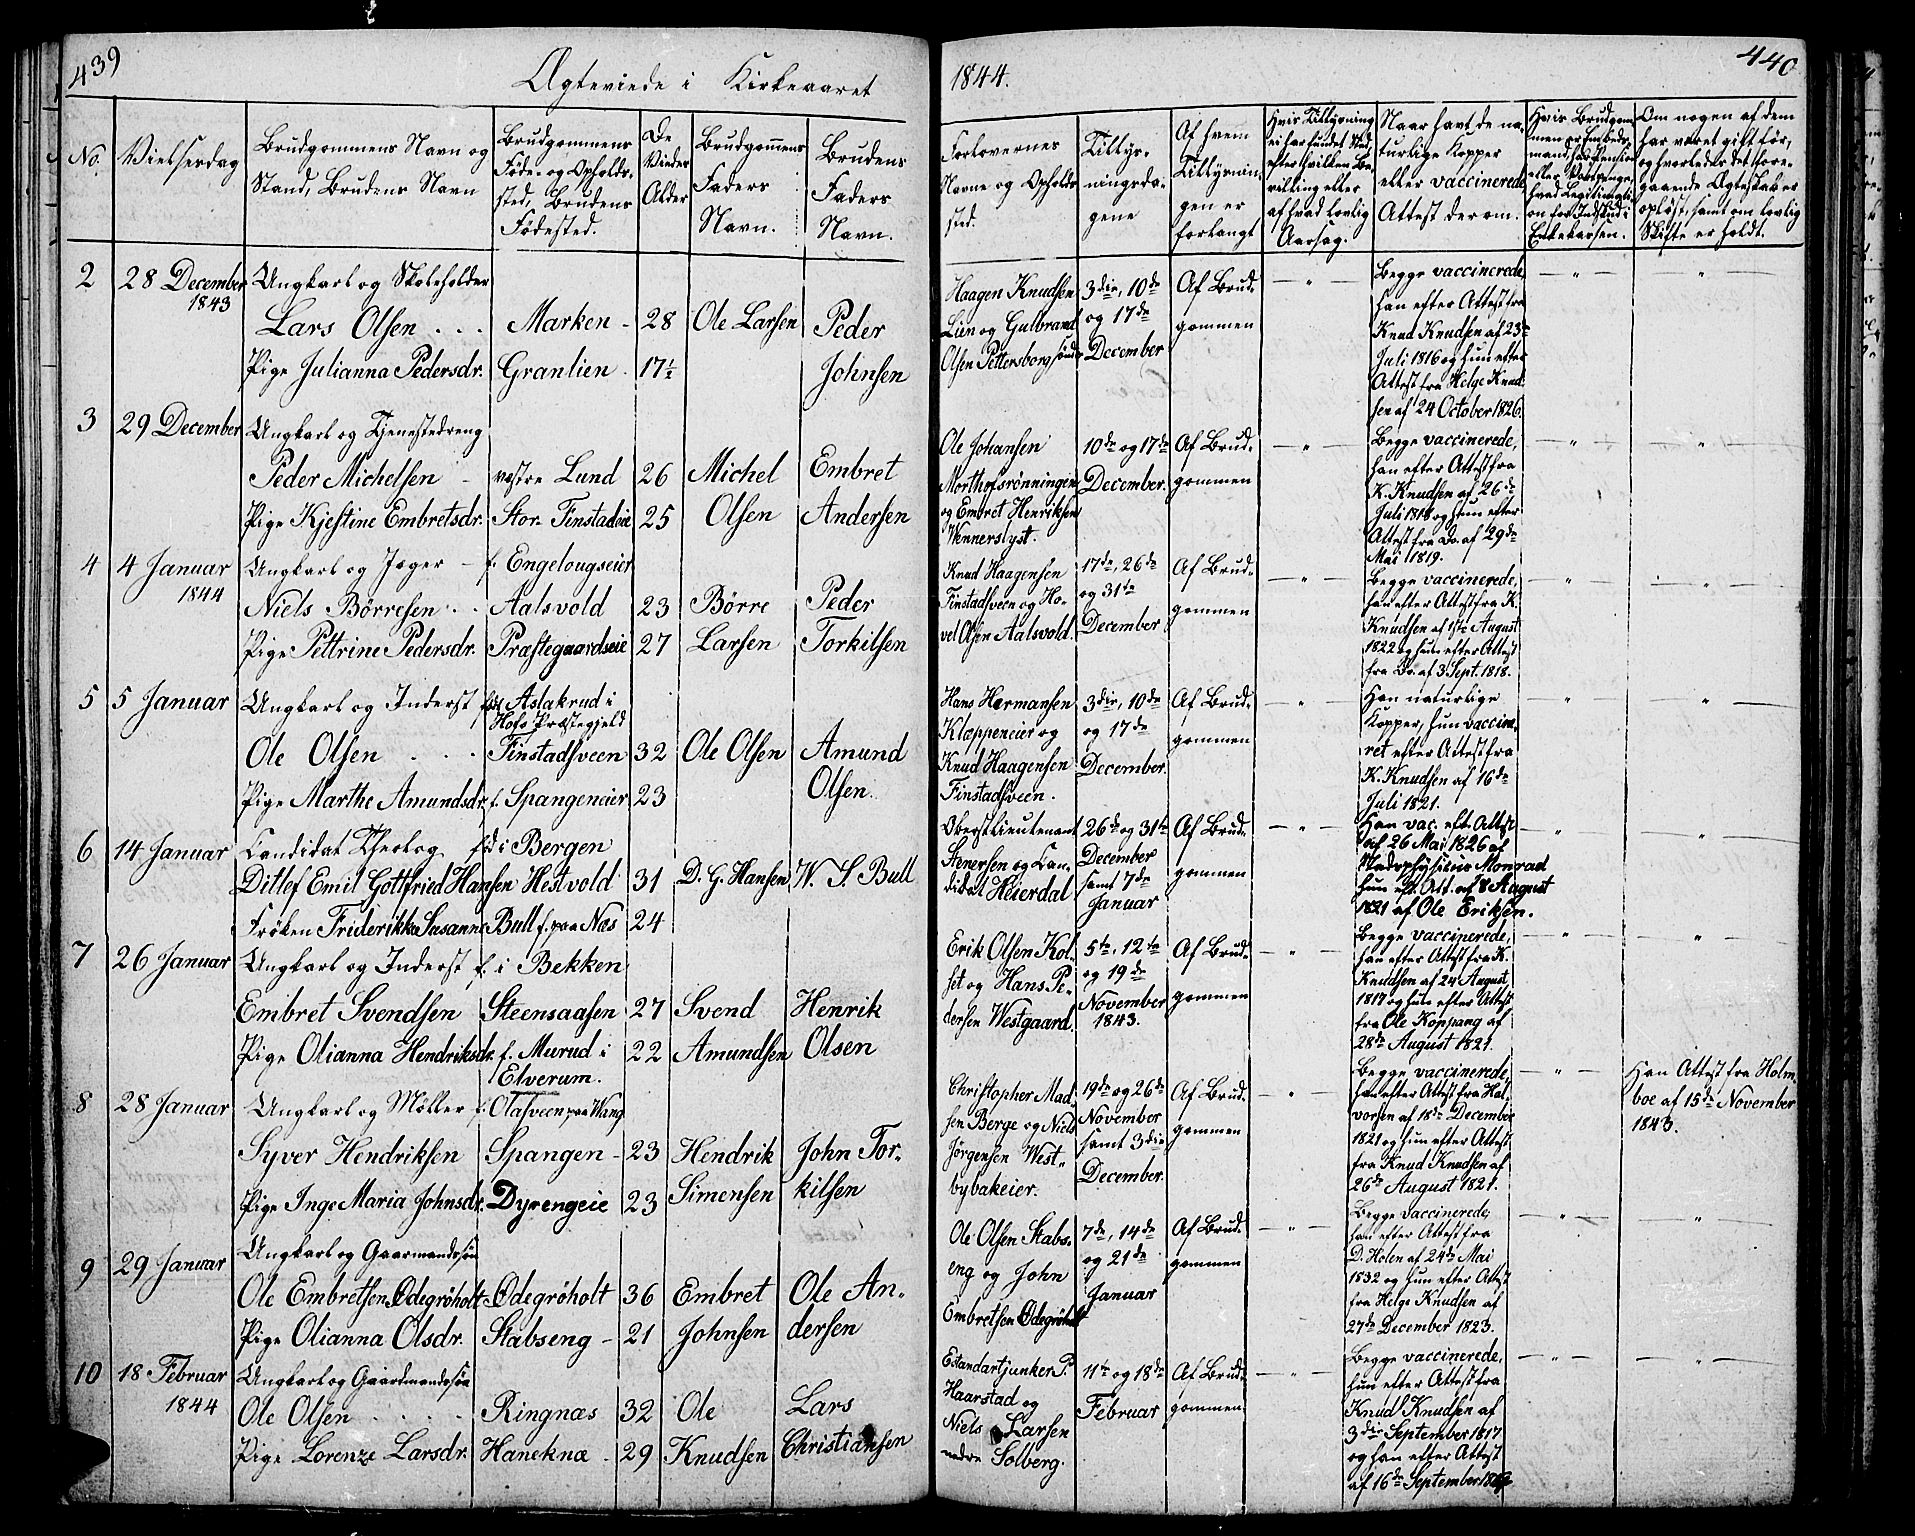 439
Ægteviede i Kirkeaaret
No.
Vielsesdag
Brudgommens Navn og
Stand, Brudens Navn
Brudgommens
Føde- og Opholds-
sted, Brudens
Fødested.
De
Viedes
Alder
Brudgommens
Faders
Navn.
Brudens
Faders
Navn.
2 28 December Ungkarl og Skoleholder
1843
Lars Olsen . . . Marken - 28 Ole Larsen Peder
Pige Julianna Pedersdr. Granlien - 17½ Johnsen
3 29 December Ungkarl og Tjenestedreng
Peder Michelsen - vestre Lund 26 Michel Embret
Pige Kjestine Embretsdr. Stor-Finstadeie 25 Olsen Andersen
4 4 Januar Ungkarl og Jæger - f. Engelougseier
1844
Niels Börresen . . Aalsvold 23 Börre Peder
Pige Pettrine Pedersdr. Præstegaardseie 27 Larsen Torkilsen
5 5 Januar Ungkarl og Inderst fød Aslakrud i
Hofs Præstegjeld
Ole Olsen . . . Finstadsveen 32 Ole Olsen Amund
Pige Marthe Amundsdr. f. Spangeneier 23 Olsen.
6 14 Januar Candidat Theolog fød i Bergen
Ditlef Emil Gottfried Hansen Hestvold 31 D. G. Hansen W. S. Bull
Frøken Friderikke Susanne Bull f. paa Næs 24
7 26 Januar Ungkarl og Inderst f. i Bekken
Embret Svendsen Steensaasen 27 Svend Henrik
Pige Olianna Hendriksdr. f. Murud i 22 Amundsen Olsen
Elverum.
8 28 Januar Ungkarl og Møller f. Olasveen paa Wang
Syver Hendriksen Spangen - 23 Hendrik John Tor-
Pige Inge Maria Johnsdr. Dyrengeie 23 Simensen kilsen
9 29 Januar Ungkarl og Gaarmandssøn
Ole Embretsen Ödegröholt Ödegröholt 36 Embret Ole An-
Pige Olianna Olsdr. Stabseng - 21 Johnsen dersen
10 18 Februar Ungkarl og Gaardmandssøn
1844
Ole Olsen . . . . Ringnæs 32 Ole Lars
Pige Lorenze Larsdr. Haneknæ - 29 Knudsen Christiansen
1844.
440
Forlovernes
Navne og Opholds-
sted.
Tillys-
ningsda-
gene
Af hvem
Tillysnin-
gen er
forlangt
Hvis Tillysning
ei har fundet Sted,
efter hvilken Be-
villing eller
af hvad lovlig
Aarsag.
Naar havt de na-
turlige Kopper
eller vaccinerede,
Attest derom.
Hvis Brudgom-
men er Embeds-
mand, har Pension
eller Vartpenge,
hvad Legitimati-
on for Indskud i
Enkekassen.
Om nogen af dem
har været gift før,
og hvorledes det fore-
gaaende Ægteskab er
opløst, samt om lovlig
Skifte er holdt.
Haagen Knudsen
Lien og Gulbrand
Olsen Pettersborg søndre
3die, 10de
og 17de
December
Af Brud-
gommen
Begge vaccinerede,
han efter Attest fra
Knud Knudsen af 23de
Juli 1816 og hun efter
Attest fra Helge Knud-
sen af 24 October 1826.
Ole Johansen
Morthofsrönningen
og Embret Henriksen
Wennerslyst.
10de og 17de
December.
Af Brud-
gommen
Begge vaccinerede,
han efter Attest fra
K. Knudsen af 26de
Juli 1818 og hun efter
Attest fra Do. af 29de
Mai 1819.
Knud Haagensen
Finstadsveen og Ho-
vel Olsen Aalsvold.
17de, 26de
og 31te
December
Af Brud-
gommen
Begge vaccinerede,
han efter Attest fra K.
Knudsen af 1ste August
1822 og hun efter Attest
fra Do. af 3 Sept. 1818.
Hans Hermansen
Klæppeneier og
Knud Haagensen
Finstadsveen.
3die, 10de
og 17de
December.
Af Brud-
gommen
Han naturlige
Kopper, hun vaccine-
ret efter Attest fra
K. Knudsen af 16de
Juli 1821.
Oberstlieutenant
Stenersen og Can-
didat Heierdal
26de og 31te
December
samt 7de
Januar
Af Brud-
gommen
Han vac. eft. Attest
af 26 Mai 1826 af
Stadsphysicus Monrad
hun eft. Att. af 8 August
1821 af Ole Eriksen.
Erik Olsen Kol-
set og Hans Pe-
dersen Westgaard.
5te, 12te
og 19de
November
1843.
Af Brud-
gommen
Begge vaccinerede,
han efter Attest fra K.
Knudsen af 24 August
1817 og hun efter Attest
fra Ole Koppang af
28de August 1821.
Christopher Mad-
sen Berge og Niels
Jörgensen West-
bybakeier.
19de og 26de
November
samt 3die
December.
Af Brud-
gommen
Begge vaccinerede,
han efter Attest fra Hal-
vorsen af 18de December
1821 og hun efter Attest
fra Knud Knudsen af
26de August 1821.
Han Attest fra Holm-
boe af 15de November
1843.
Ole Olsen Stabs-
eng og John
Embretsen Ödegröholt
7de, 14de
og 21de
Januar
Af Brud-
gommen
Begge vaccinerede,
han efter Attest fra
D. Holen af 24de Mai
1832 og hun efter Attest
fra Helge Knudsen af
27de December 1823.
Estandartjunker P.
Haarstad og
Niels Larsen
nedre Solberg.
11te og 18de
Februar
Af Brud-
gommen
Begge vaccinerede,
hun efter Attest fra
Knud Knudsen af
3die September 1817
og han efter Attest
af 16de September